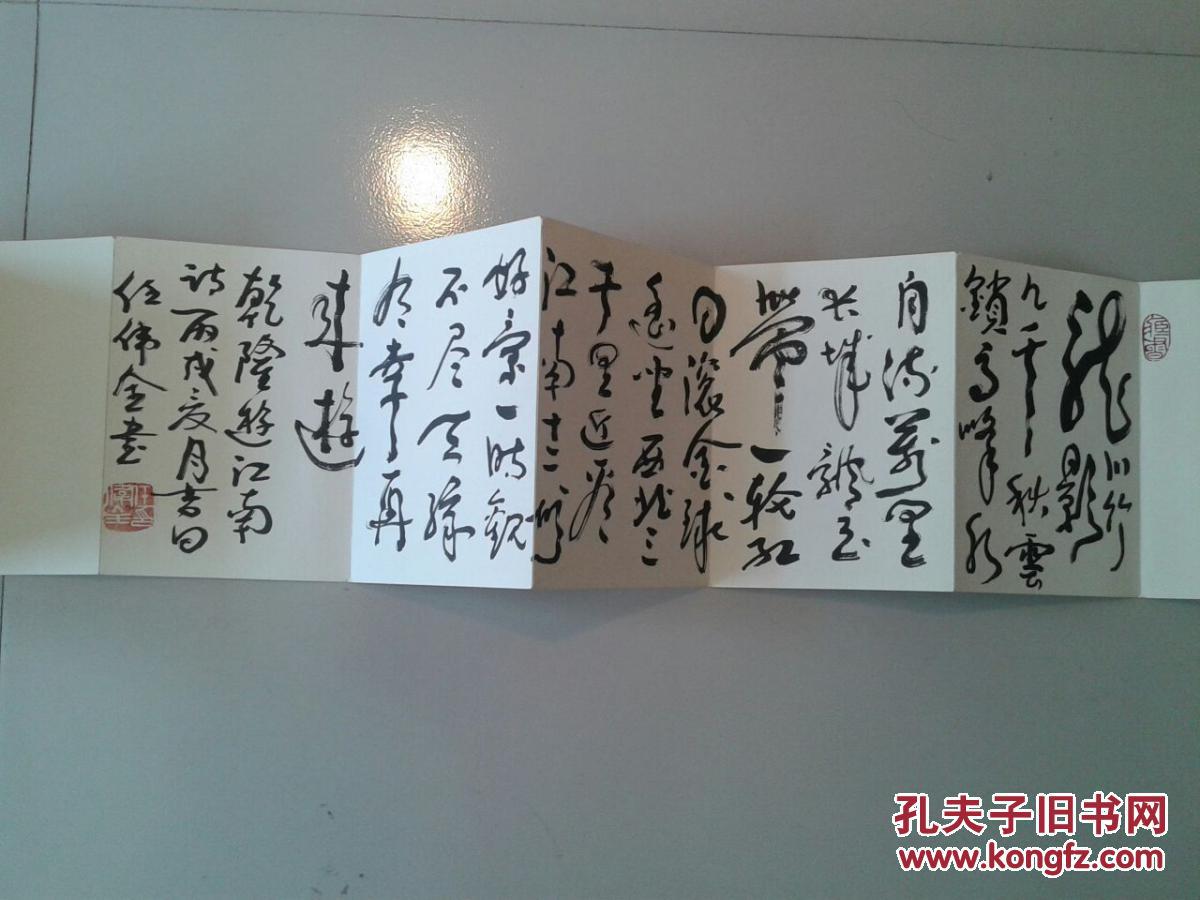 龍川竹影
几千秋雲
鎖高峰水
自流萬里
长城飄玉
帶一轮红
日滚金球
遠望西北三
千里近看
江南十二州
好景一時觀
不尽天缘
有幸再
来遊
乾隆遊江南
诗丙戌夏月吉日
任伟全书
孔夫子旧书网
www.kongfz.com